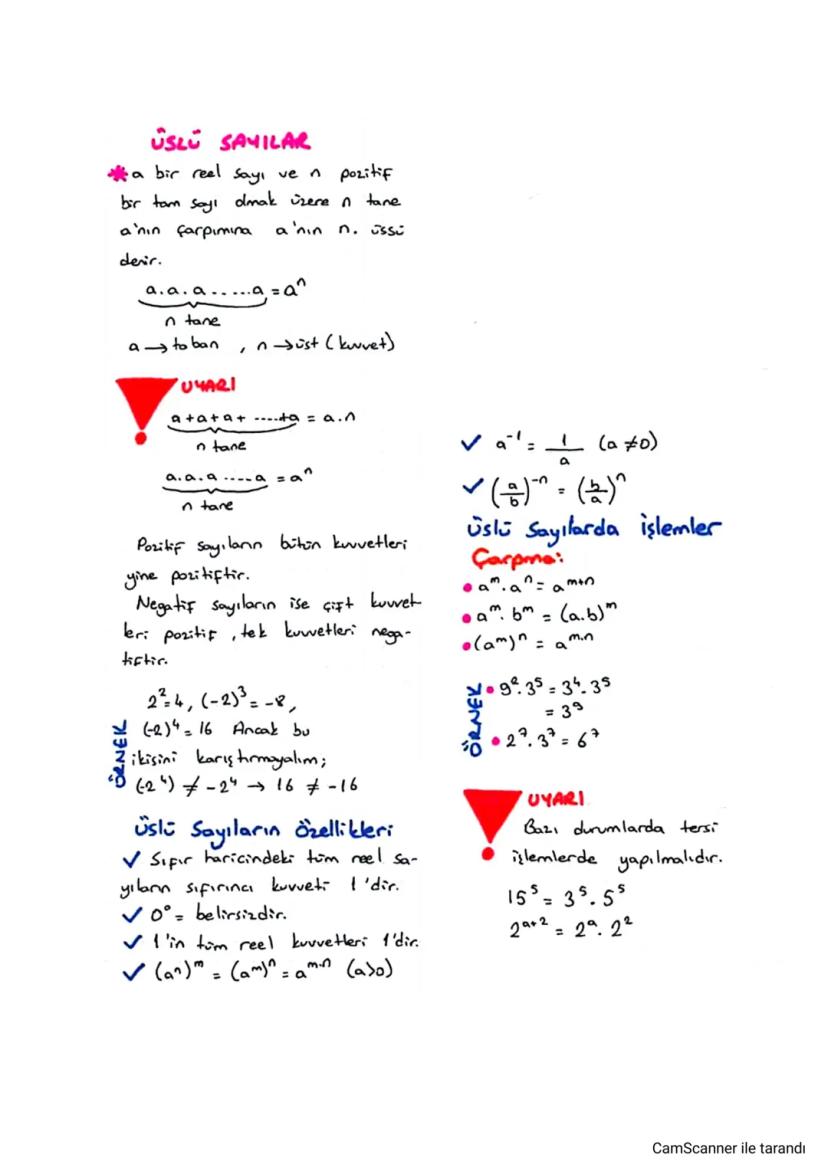 ÜSLÜ SAYILAR
* a bir reel sayı ve n pozitif
bir tam sayı olmak üzere n tane
a'nın çarpımına a'nın n. üssü
denir.
a.a.a......a = aⁿ
n tane
a → taban , n → üst (kuvvet)
UYARI
a+a+a+ .....+a = a.n
n tane
a.a.a.....a = aⁿ
n tane
Pozitif sayıların bütün kuvvetleri
yine pozitiftir.
Negatif sayıların ise çift kuvvet
leri pozitif , tek kuvvetleri nega-
tiftir.
ÖRNEK
2²=4, (-2)³ = -8,
(-2)⁴ = 16 Ancak bu
ikisini karıştırmayalım;
(-2⁴) ≠ -2⁴ → 16 ≠ -16
Üslü Sayıların Özellikleri
✓ Sıfır haricindeki tüm reel sa-
yıların sıfırıncı kuvveti 1'dir.
✓ 0⁰ = belirsizdir.
✓ 1'in tüm reel kuvvetleri 1'dir.
✓ (aⁿ)ᵐ = (aᵐ)ⁿ = aᵐ·ⁿ (a>0)
✓ a⁻¹ = 1/a (a ≠ 0)
✓ (a/b)⁻ⁿ = (b/a)ⁿ
Üslü Sayılarda İşlemler
Çarpma:
• aᵐ.aⁿ = aᵐ⁺ⁿ
• aᵐ.bᵐ = (a.b)ᵐ
• (aᵐ)ⁿ = aᵐ·ⁿ
ÖRNEK
• 9².3⁵ = 3⁴.3⁵
= 3⁹
• 2⁷.3⁷ = 6⁷
UYARI
Bazı durumlarda tersi
işlemlerde yapılmalıdır.
15⁵ = 3⁵.5⁵
2ᵃ⁺² = 2ᵃ.2²
CamScanner ile tarandı